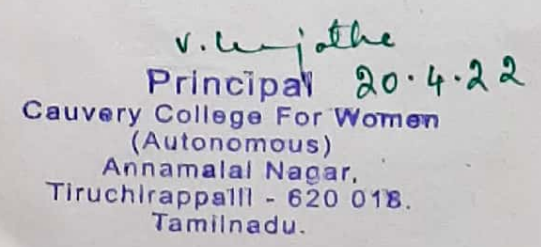 V. Sujatha
Principal 20.4.22
Cauvery College For Women
(Autonomous)
Annamalai Nagar,
Tiruchirappalli - 620 018.
Tamilnadu.